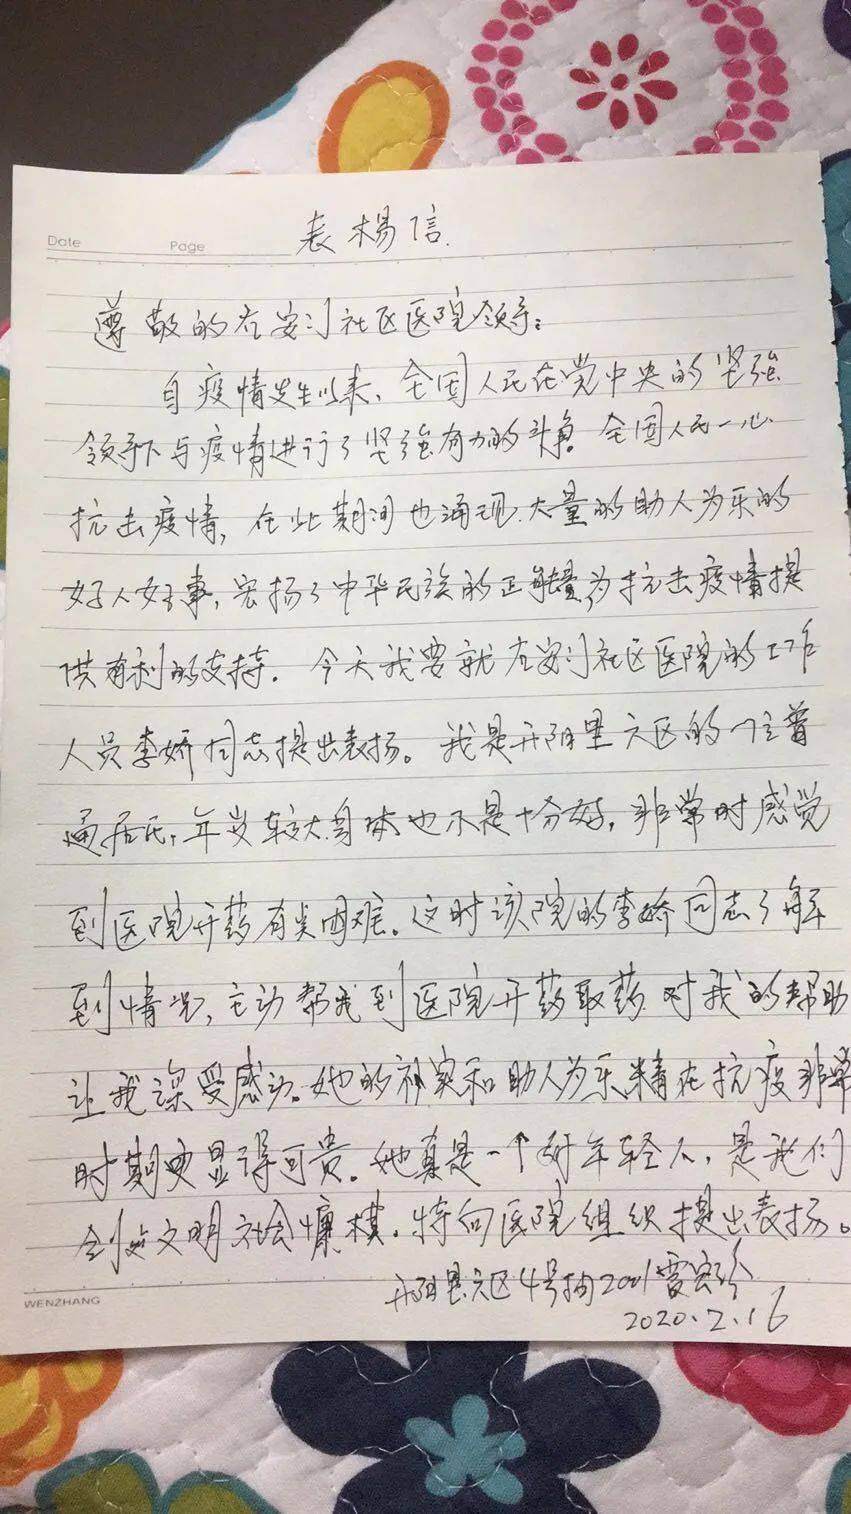 Date Page 表杨信
尊敬的右安门社区医院领导:
自疫情发生以来、全国人民在党中央的坚强
领导下与疫情进行了坚强有力的斗争。全国人民一心
抗击疫情,在此期间也涌现大量的助人为乐的
好人好事,宏扬了中华民族的正能量,为抗击疫情提
供有利的支持。今天我要就右安门社区医院的工作
人员李娇同志提出表扬。我是开阳里六区的一位普
通居民,年岁较大身体也不是十分好,非常时感觉
到医院开药有关困难。这时该院的李娇同志了解
到情况,主动帮我到医院开药取药对我的帮助
让我深受感动。她的和助人为乐精在抗疫非常
时期更显得可贵。她真是一个好年轻人,是我们
创造文明社会模。特向医院组织提出表扬。
开阳里六区4号2001雷
2020.2.16
WENZHANG